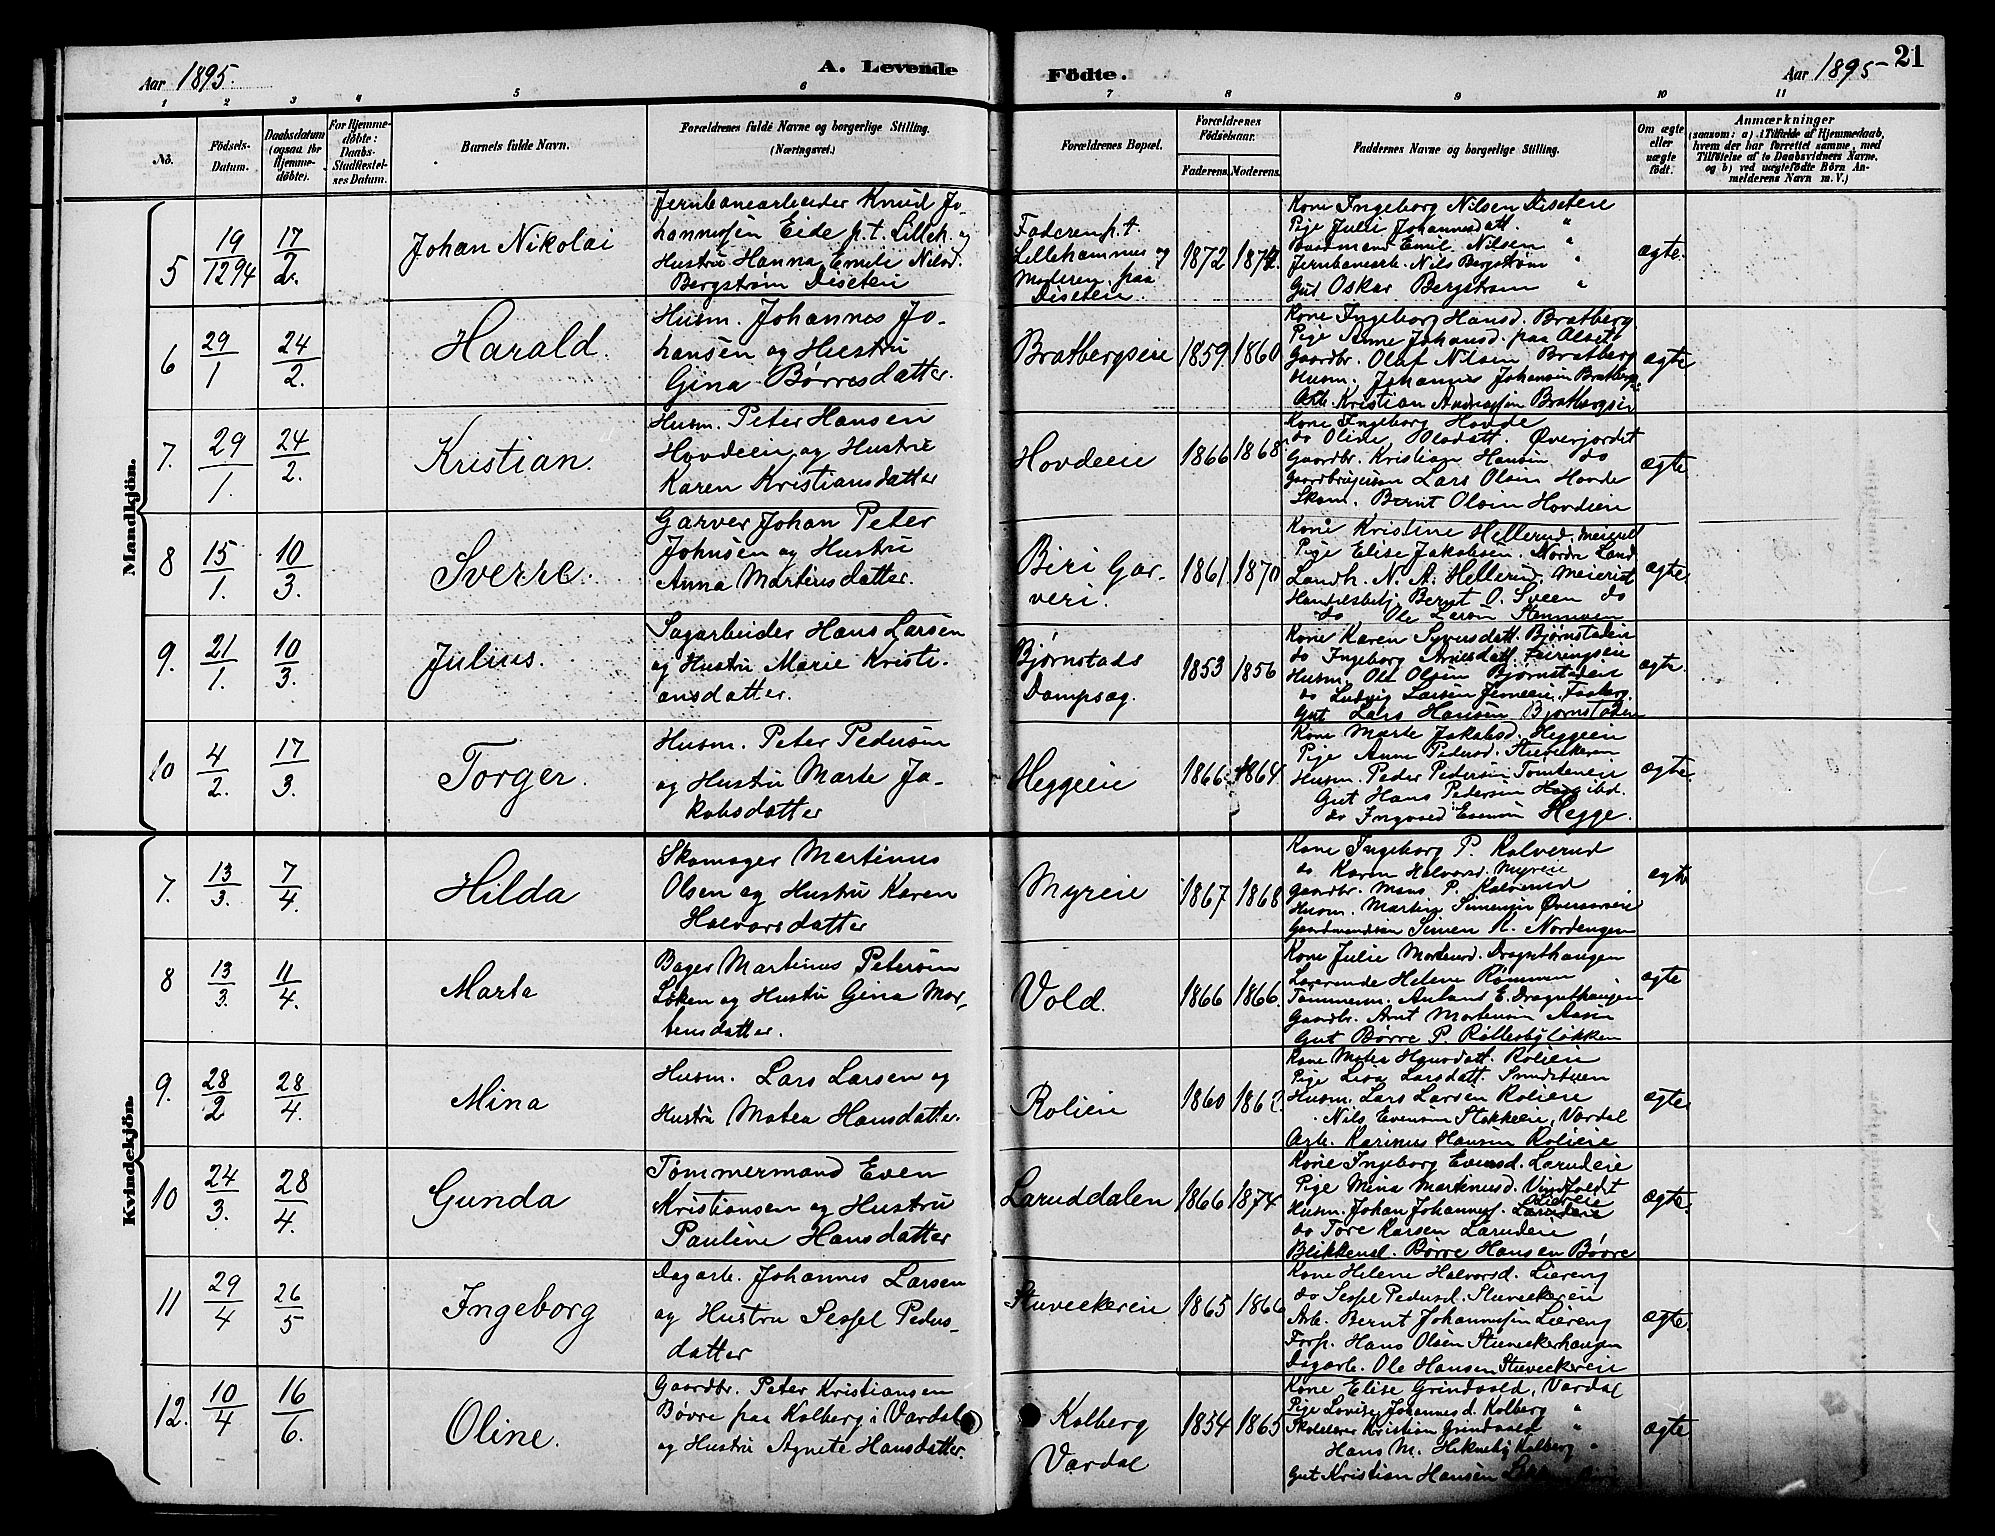 Aar 1895.
A. Levende Födte.
Aar 1895
21
1 2 3 4 5 6 7 8 9 10 11
No.
Födsels-
Datum.
Daabsdatum
(ogsaa for
Hjemme-
döbte).
For Hjemme-
döbte:
Daabs-
Stadfæstel-
ses Datum.
Barnets fulde Navn.
Forældrenes fulde Navne og borgerlige Stilling.
(Næringsvei.)
Forældrenes Bopæl.
Forældrenes
Födselsaar.
Faderens. Moderens.
Faddernes Navne og borgerlige Stilling.
Om ægte
eller
uægte
født.
Anmærkninger
(saasom: a) i Tilfælde af Hjemmedaab,
hvem der har forrettet samme, med
Tilföielse af to Daabsvidners Navne.
og b) ved uægtefödte Börn An-
melderens Navn m. V.)
Mandkjön.
5
19/1294
17/2.
Johan Nikolai
Jernbanearbeider Knud Jo-
hannesen Eide p.t. Lilleh. og
Hustru Hanna Emilie Nilsd.
Bergstrøm Diseteie
Faderen p.t.
Lillehammer og
Moderen paa
Diseteie.
1872
1872.
Kone Ingeborg Nilsen Diseteie
Pige Julie Johannesdatt. "
Emil Nilsen "
Jernbanearb. Nils Bergstrøm "
Gut Oskar Bergstrøm "
ægte.
6
29/1
24/2.
Harald.
Husm. Johannes Jo-
hansen og Hustru
Gina Børresdatter.
Bratbergseie
1859.
1860
Kone Ingeborg Hansd. Bratberg.
Pige Anne Johansd. paa Alset
Gaardbr. Olaf Nilsen Bratberg
Husm. Johannes Johansen Bratberg
Arb. Kristian Andreassen Bratbergseie
ægte
7.
29/1.
24/2.
Kristian.
Husm. Peter Hansen
Hovdeeie og Hustru
Karen Kristiansdatter
Hovdeeie
1866
1868.
Kone Ingeborg Hovde
do Oline Olsdatt. Øverjordet
Gaardbr. Kristian Hansen do
Lars Olsen Hovde
Skom. Bernt Olsen Hovdeeie
ægte
8
15/1.
10/3.
Sverre.
Garver Johan Peter
Johnsen og Hustru
Anna Martinusdatter.
Biri Gar-
veri.
1861.
1870
Kone Kristine Hellerud, Meieriet
Pige Elise Jakobsen. Nordre Land
Landh. N. A. Hellerud, Meieriet
Handelsbetj. Bernt O. Sveen do
do Ole Larsen
ægte
9.
21/1.
10/3.
Julius.
Sagarbeider Hans Larsen
og Hustru Marie Kristi-
ansdatter.
Bjørnstads
Dampsag.
1853
1856
Kone Karen Syversdatt. Bjørnstadeie
do Ingeborg Arnesdatt.
Husm. Ole Olsen Bjørnstadeie
do Ludvig Larsen Faaberg.
Gut Lars Hansen Bjørnstadeie
ægte.
10
4/2.
17/3.
Torger.
Husm. Peter Pedersen
og Hustru Marte Ja-
kobsdatter
Heggeeie
1866.
1864.
Kone Marte Jakobsd. Heggeeie
Pige Anne Pedersd.
Husm. Peder Pedersen Tomteneie
Gut Hans Pedersen
do Ingvald Hegge.
ægte.
Kvindekjön.
7.
13/3.
7/4.
Hilda
Skomager Martinus
Olsen og Hustru Karen
Halvorsdatter
Myreie
1867
1868
Kone Ingeborg P. Kalverud
do. Karen Halvorsd. Myreie
Gaardbr. Mons P. Kalverud
Husm. Martin Simensen
Gaardmandssøn Simen H. Nordengen
ægte
8
13/3.
11/4.
Marta
Bager Martinus Petersen
Løken og Hustru Gina Mor-
tensdatter.
Vold.
1866
1866.
Kone Julie Mortensd. Dragethaugen
Lærerinde Helene Rømmen
Tømmerm. E. Dragethaugen
Gaardbr. Arnt Mortensen Aasen
Gut Børre P. Røllesbyløkken
ægte
9.
28/2
28/4.
Mina
Husm. Lars Larsen og
Hustru Matea Hansdatter.
Rolieie
1860
1862.
Kone Matea Hansdatt. Rolieie
Pige Lisa Larsdatt. Smidstuen
Husm. Lars Larsen Rolieie
Nils Evensen Stokkeeie, Vardal
Arb. Karinus Hansen Rolieie
ægte
10
24/3.
28/4.
Gunda
Tømmermand Even
Kristiansen og Hustru
Pauline Hansdatter
Laruddalen
1866
1874
Kone Ingeborg Evensd. Larudeie
Pige Mina Martinusd. Vindfaldet
Husm. Johan Johanness. Larudeie
do Tore Larsen Larudeie
Blikkensl. Børre Hansen Bøvre
ægte.
11
29/4
26/5
Ingeborg
Dagarb. Johannes Larsen
og Hustru Sessel Peders-
datter
Stuveekereie
1865
1866
Kone Helene Halvorsd. Liereng
do Sessel Pedersd. Stuveekereie
Arb. Bernt Johannessen Liereng
Forp. Hans Olsen Stuveekerhaugen
Dagarb. Ole Hansen Stuveekereie
ægte.
12.
10/4
16/6.
Oline.
Gaardbr. Peter Kristiansen
Bøvre paa Kolberg i Vardal
og Hustru Agnete Hansdatter.
Kolberg
Vardal
1854
1865
Kone Elise Grindvold, Vardal
Pige Lovise Johannesd. Kolberg "
Skolelærer Kristian Grindvold "
Hans M. Kolberg "
Gut Kristian Hansen
ægte